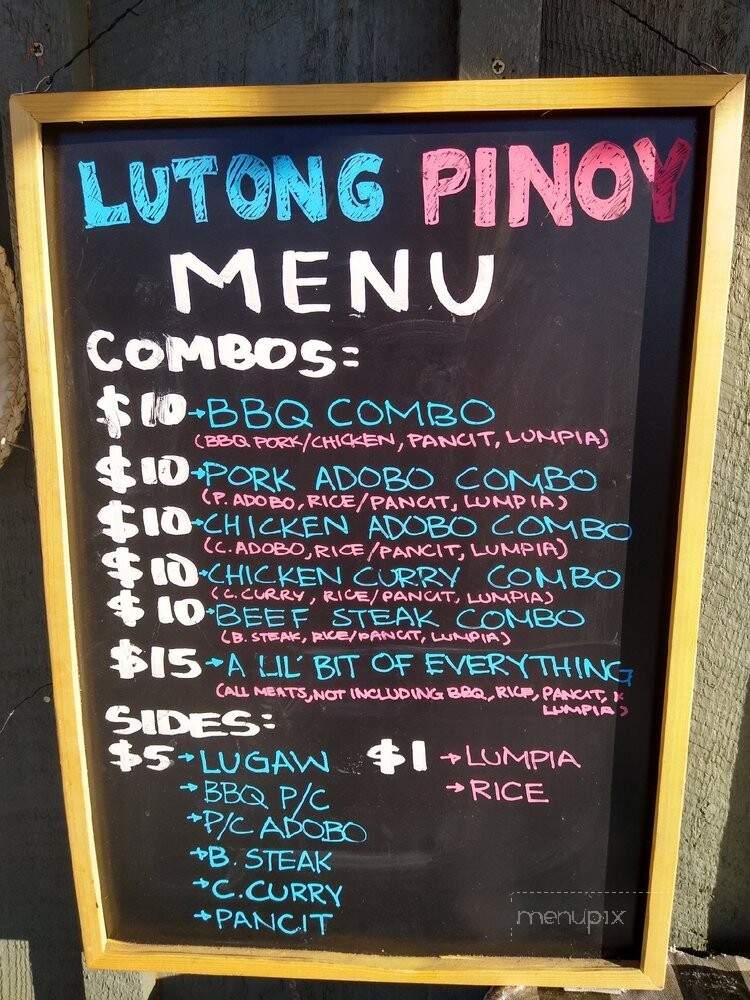 LUTONG PINOY
MENU
COMBOS:
$10→BBQ COMBO
(BBQ PORK/CHICKEN, PANCIT, LUMPIA)
$10→PORK ADOBO COMBO
(P. ADOBO, RICE/PANCIT, LUMPIA)
$10→CHICKEN ADOBO COMBO
(C. ADOBO, RICE/PANCIT, LUMPIA)
$10→CHICKEN CURRY COMBO
(C. CURRY, RICE/PANCIT, LUMPIA)
$10→BEEF STEAK COMBO
(B. STEAK, RICE/PANCIT, LUMPIA)
$15→A LIL' BIT OF EVERYTHING
(ALL MEATS, NOT INCLUDING BBQ, RICE, PANCIT,
LUMPIA)
SIDES:
$5→LUGAW $1→LUMPIA
→BBQ P/C →RICE
→P/C ADOBO
→B. STEAK
→C. CURRY
→PANCIT
menupix